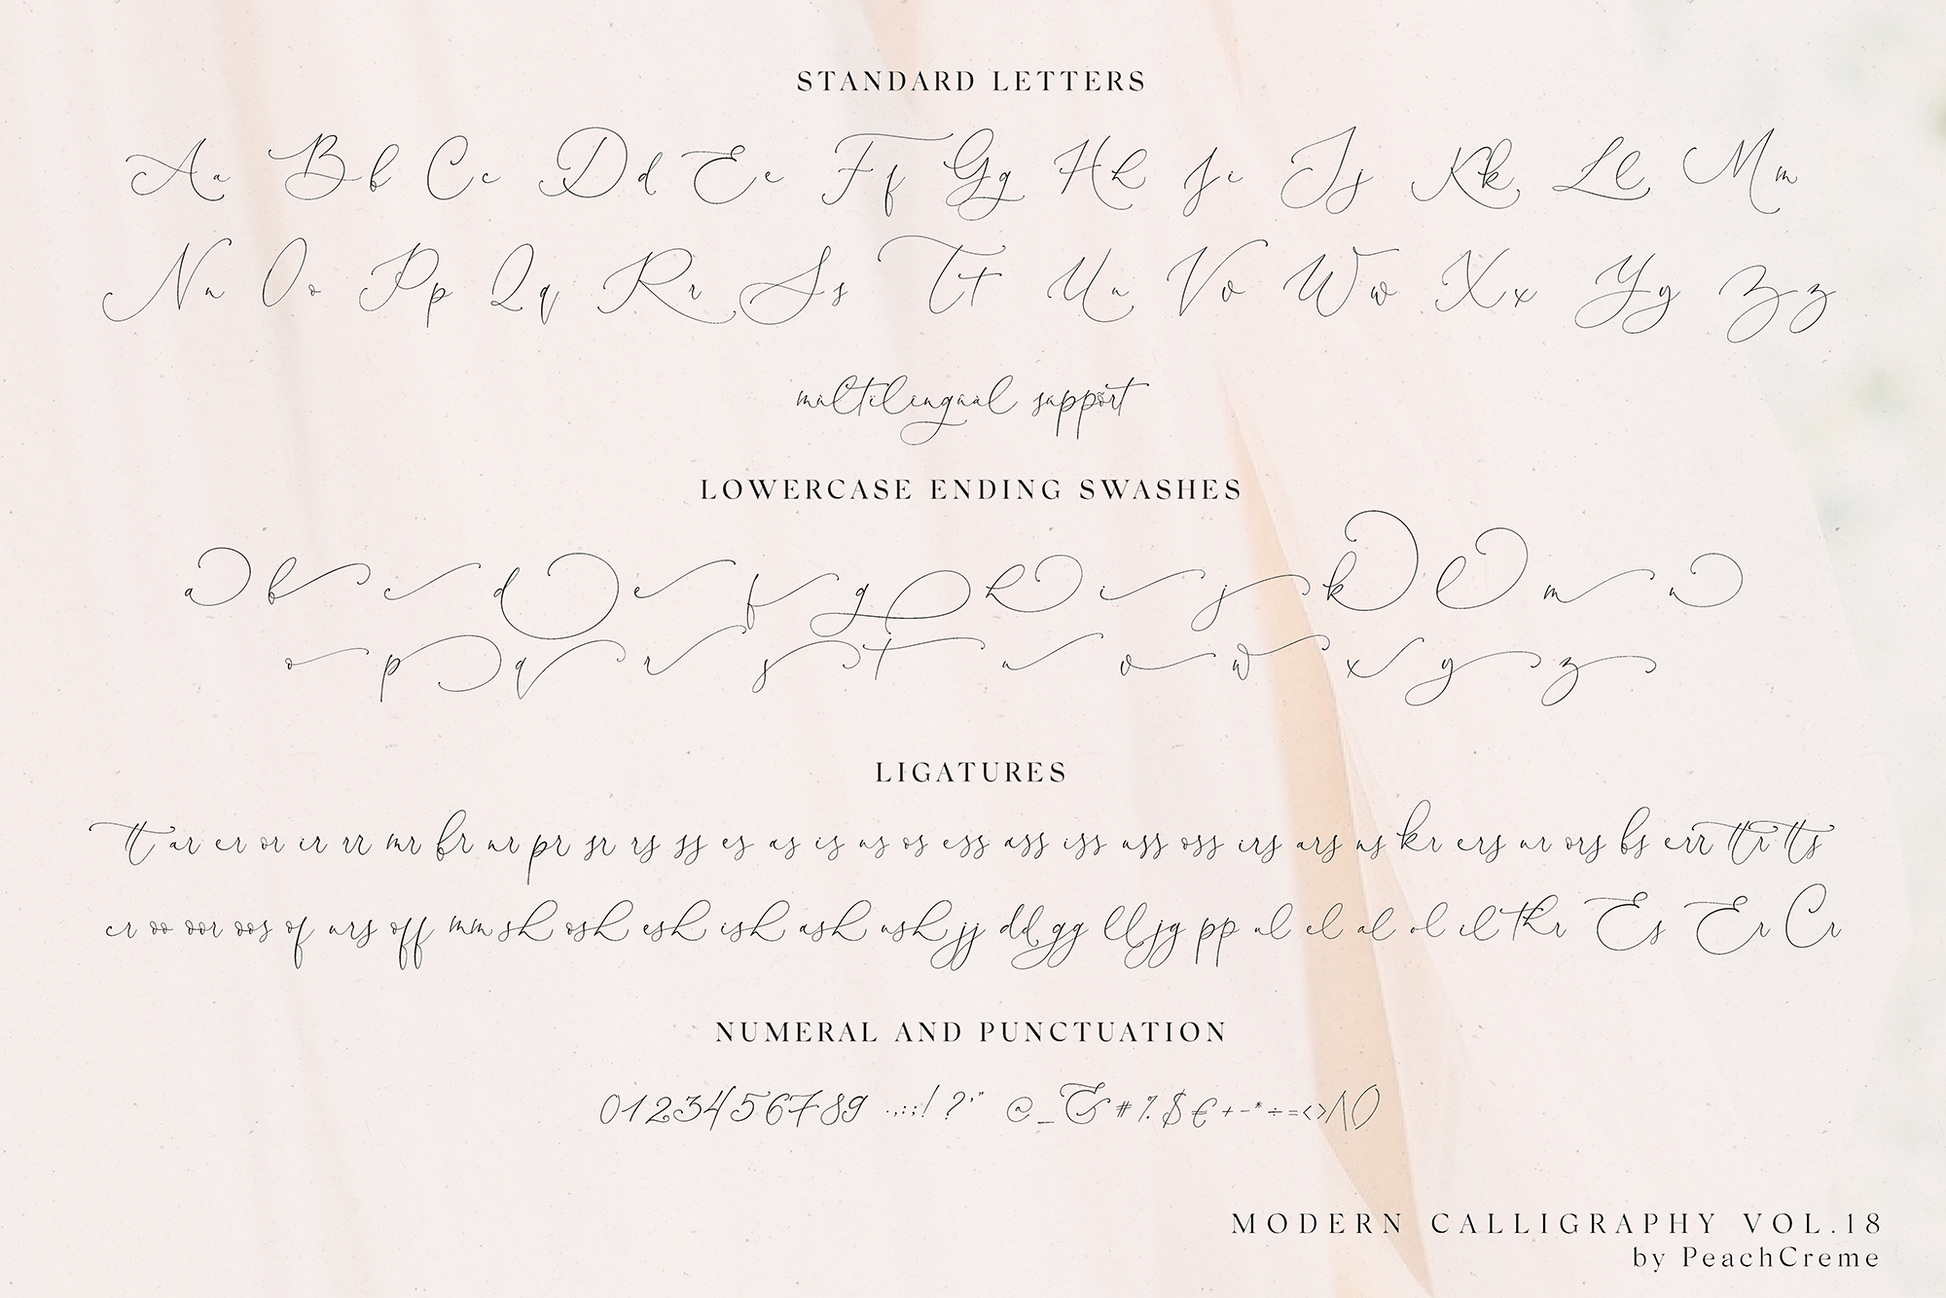 STANDARD LETTERS
Aa Bb Cc Dd Ee Ff Gg Hh Ii Jj Kk Ll Mm
Nn Oo Pp Qq Rr Ss Tt Uu Vv Ww Xx Yy Zz
multilingual support
LOWERCASE ENDING SWASHES
a b c d e f g h i j k l m n
o p q r s t u v w x y z
LIGATURES
tt ar er or ir rr mr br ur pr sr rs ss es as is us os ess ass iss uss oss irs ars ns kr ers nr ors bs err ttr tts
cr oo oor oos of urs off mm sh osh esh ish ash ush jj dd gg ll jg pp ul el al ol il thr Es Er Cr
NUMERAL AND PUNCTUATION
0123456789 .,:;!?'" @_&#%$€+-*÷=<>/\()
MODERN CALLIGRAPHY VOL.18
by PeachCreme